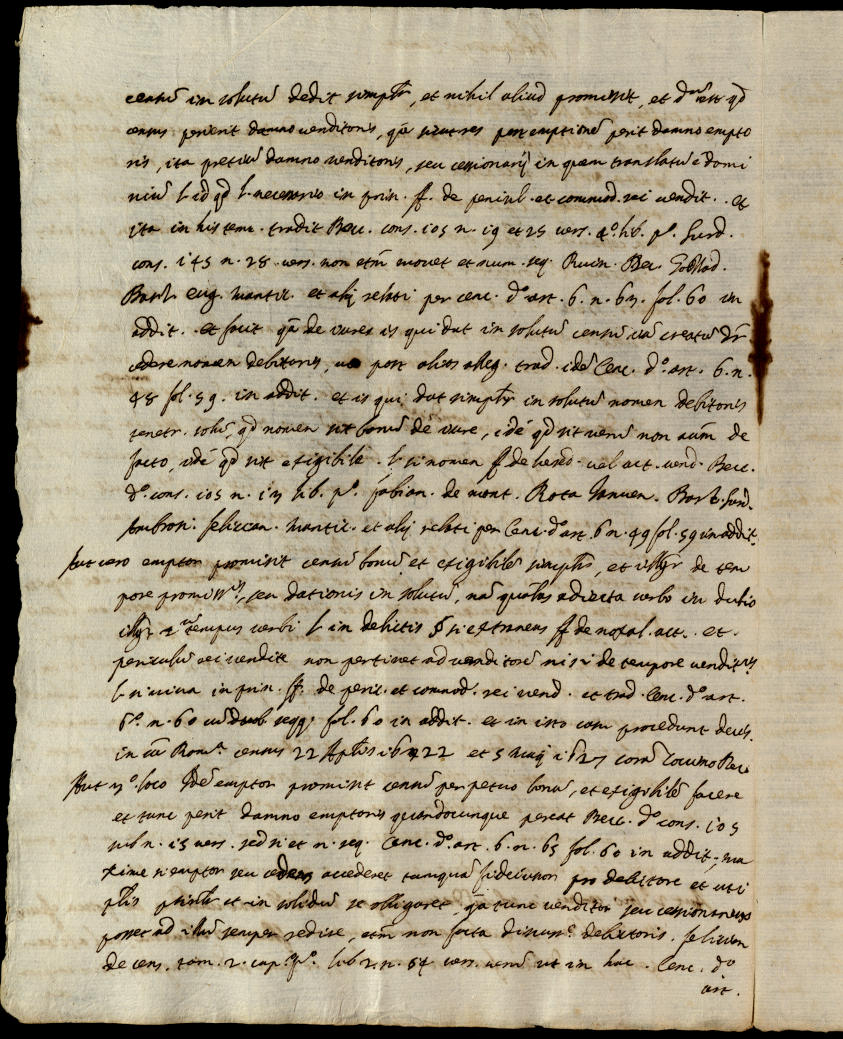 censū in solutū dedit simplr, et nihil aliud promisit, et dm est qd
census perierit damno venditoris, qa sicut res post emptionē perit damno empto
ris, ita pretiū damno venditoris, seu cessionarij in quem translatū ē domi
niū l. id qd l. necessario in prin. ff. de pericul. et commod. rei vendit. et
ita in his term. tradit Becc. cons. 105 n. 19 et 25 vers. 4.° lib. p.° Surd.
cons. 145 n. 28 vers. non etm movet et num. seq. Ruin. Bec. Gobbad.
Barth. eug. Mantic. et alij relati per cenc. d.° art. 6. n. 63. fol. 60 in
addit. et facit qa de iure is qui dat in solutū censū iam creatū dr
cedere nomen debitoris, post alios alleg. trad. idē Cenc. d.° art. 6. n.
48 fol. 59. in addit. et is qui dat simplr in solutū nomen debitoris
tenetr. solū, qd nomen sit bonū de iure, idē qd sit verū non aūm de
facto, idē qd sit exigibile. l. si nomen ff de hered. vel act. vend. Becc.
d.° cons. 105 n. 13 lib. p.° fabian. de mont. Rota Ianuen. Bart. Surd.
Ambros. felician. Mantic. et alij relati per Cenc. d.° art. 6 n. 49 fol. 59 in addit.
Aut vero emptor promisit censū bonū et exigibilē simplr, et illgr de tem
pore promissnis, seu dationis in solutū, nā qualitas adiecta verbo in dubio
illgr 2m tempus verbi l. in delictis § si extraneus ff de noxal. act. et
periculū rei vendite non pertinet ad venditorē nisi de tempore venditnis
l. si vina in prin. ff. de peric. et commod. rei vend. et trad. Cenc. d.° art.
6.° n. 60 cū duob. seqq. fol. 60 in addit. et in isto casu procedunt decis.
in cā Romna census 22 Aplis 1622 et 5 maij 1627 corā
Aut 3.° loco emptor promisit censū perpetuo bonū, et exigibilē facere
et tunc perit damno emptoris quandocunque pereat Becc. d.° cons. 105
sub n. 15 vers. sed si et n. seq. Cenc. d.° art. 6. n. 65 fol. 60 in addit. ma
xime si emptor seu cedens accederet tamquā fideiussor pro debitore et uti
plis prinlr et in solidū se obligaret, qa tunc venditor seu cessionarius
posset ad illū semper redire, etm non facta discuss.e debitoris. felician
de cens. tom. 2. cap. p.° lib. 2. n. 64 vers. verū ut in hac. Cenc. d.°
art.